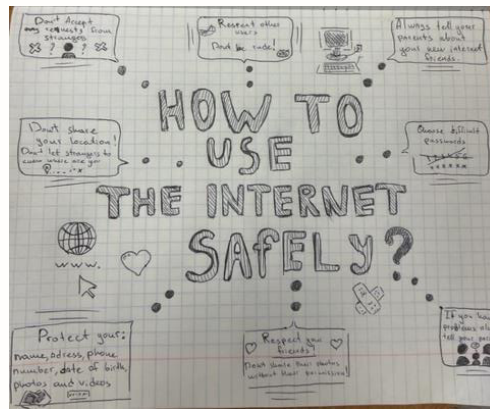 Don't Accept
any requests from
strangers
? ?
Respect other
users
Don't be rude!
Always tell your
parents about
your new internet
friends.
HOW TO
USE
THE INTERNET
SAfELY?
Don't share
your location!
Don't let strangers to
know where are you
Choose difficult
passwords
www.
Protect your:
name, adress, phone
number, date of birth,
photos and videos
Respect your
friends!
Don't share their photos
without their permission!
If you have
problems
tell your